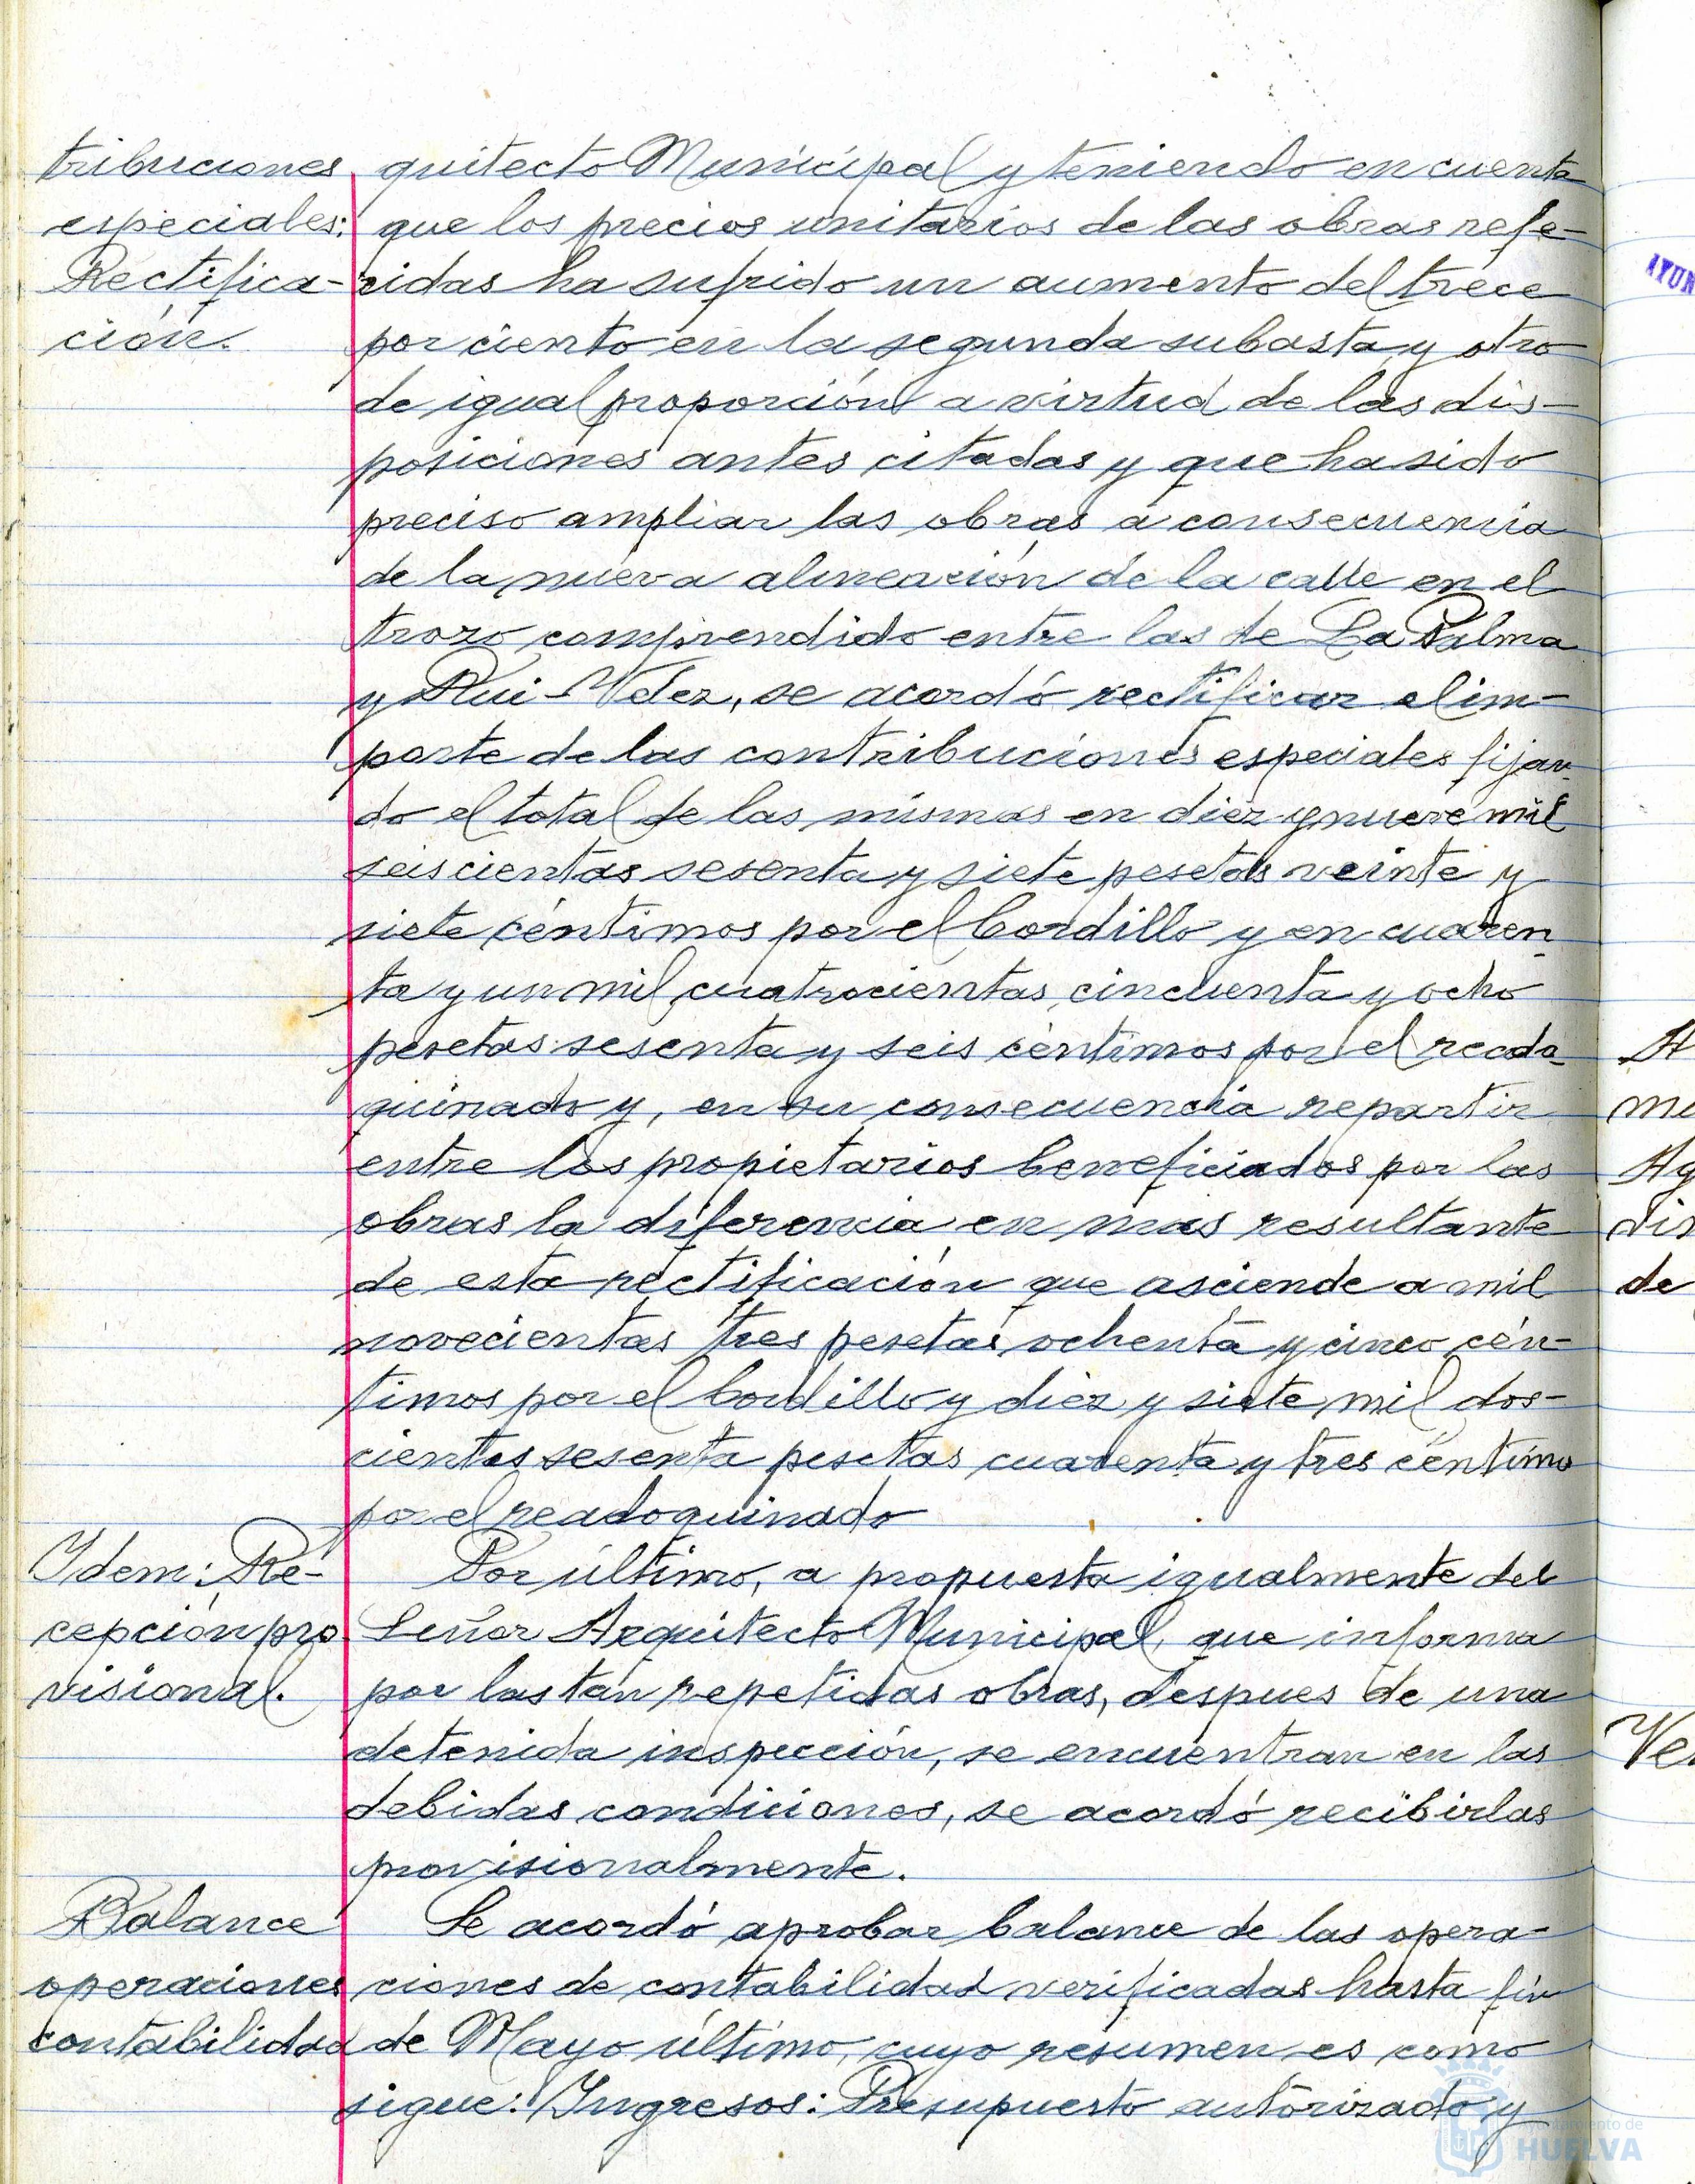 tribuciones
especiales:
Rectifica-
ción.
quitecto Municipal y teniendo en cuenta
que los precios unitarios de las obras refe-
ridas ha sufrido un aumento del trece
por ciento en la segunda subasta y otro
de igual proporción a virtud de las dis-
posiciones antes citadas y que ha sido
preciso ampliar las obras a consecuencia
de la nueva alineación de la calle en el
trozo comprendido entre las de La Palma
y Rui-Velez, se acordó rectificar el im-
porte de las contribuciones especiales fijan-
do el total de las mismas en diez y nueve mil
seiscientas sesenta y siete pesetas veinte y
siete céntimos por el bordillo y en cuaren-
ta y un mil cuatrocientas cincuenta y ocho
pesetas sesenta y seis céntimos por el reado-
quinado y, en su consecuencia repartir
entre los propietarios beneficiados por las
obras la diferencia en mas resultante
de esta rectificación que asciende a mil
novecientas tres pesetas ochenta y cinco cén-
timos por el bordillo y diez y siete mil dos-
cientas sesenta pesetas cuarenta y tres céntimos
por el readoquinado
Idem: Re-
cepción pro
visional.
Por último, a propuesta igualmente del
Señor Arquitecto Municipal, que informa
por las tan repetidas obras, despues de una
detenida inspección, se encuentran en las
debidas condiciones, se acordó recibirlas
provisionalmente.
Balance
operaciones
contabilidad
Se acordó aprobar balance de las opera-
ciones de contabilidad verificadas hasta fin
de Mayo último, cuyo resumen es como
sigue: Ingresos: Presupuesto autorizado y
AYUN
A
mu
Ag
dis
de
Ve
Ayuntamiento de
HUELVA